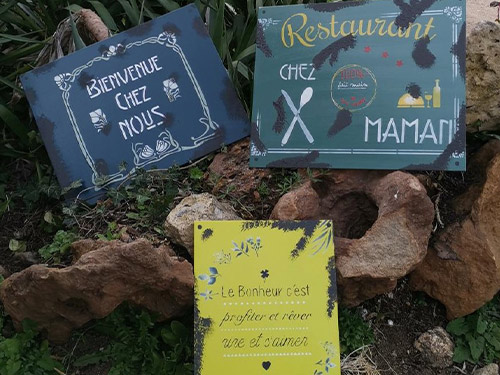 BIENVENUE
CHEZ
NOUS
Restaurant
CHEZ
fait maison
MAMAN
Le Bonheur c'est
profiter et rêver
rire et s'aimer